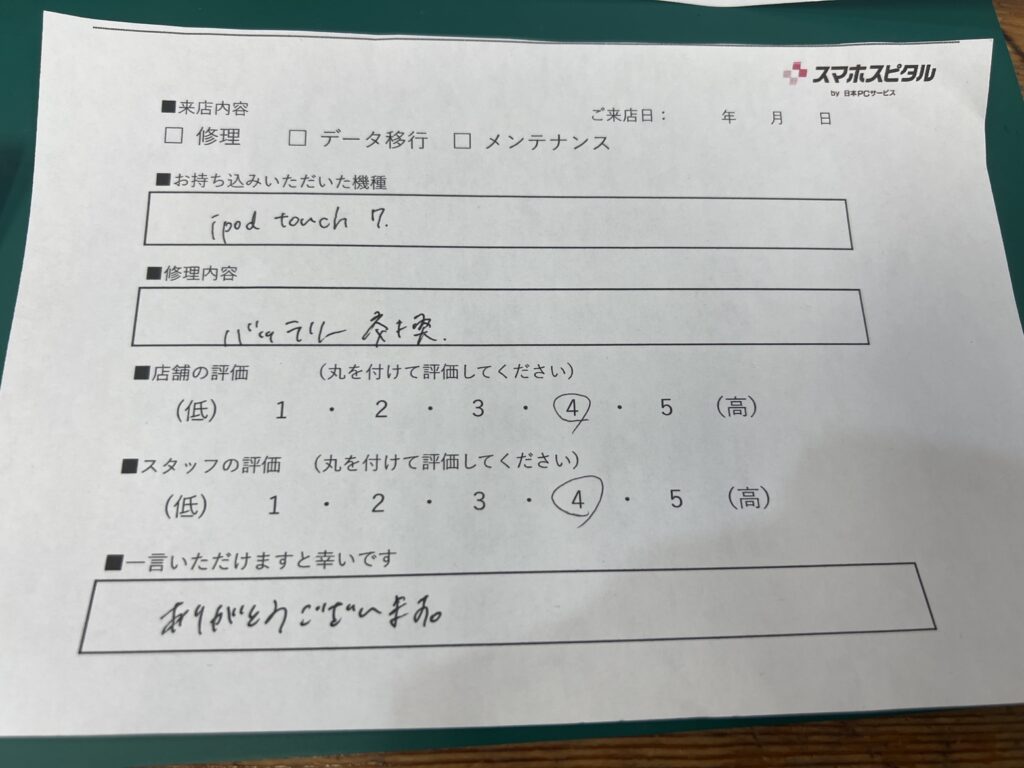 スマホスピタル
by 日本PCサービス
■来店内容
ご来店日： 年 月 日
□ 修理 □ データ移行 □ メンテナンス
■お持ち込みいただいた機種
ipod touch 7.
■修理内容
バッテリー交換.
■店舗の評価 （丸を付けて評価してください）
（低） 1 ・ 2 ・ 3 ・ 4 ・ 5 （高）
■スタッフの評価 （丸を付けて評価してください）
（低） 1 ・ 2 ・ 3 ・ 4 ・ 5 （高）
■一言いただけますと幸いです
ありがとうございます。